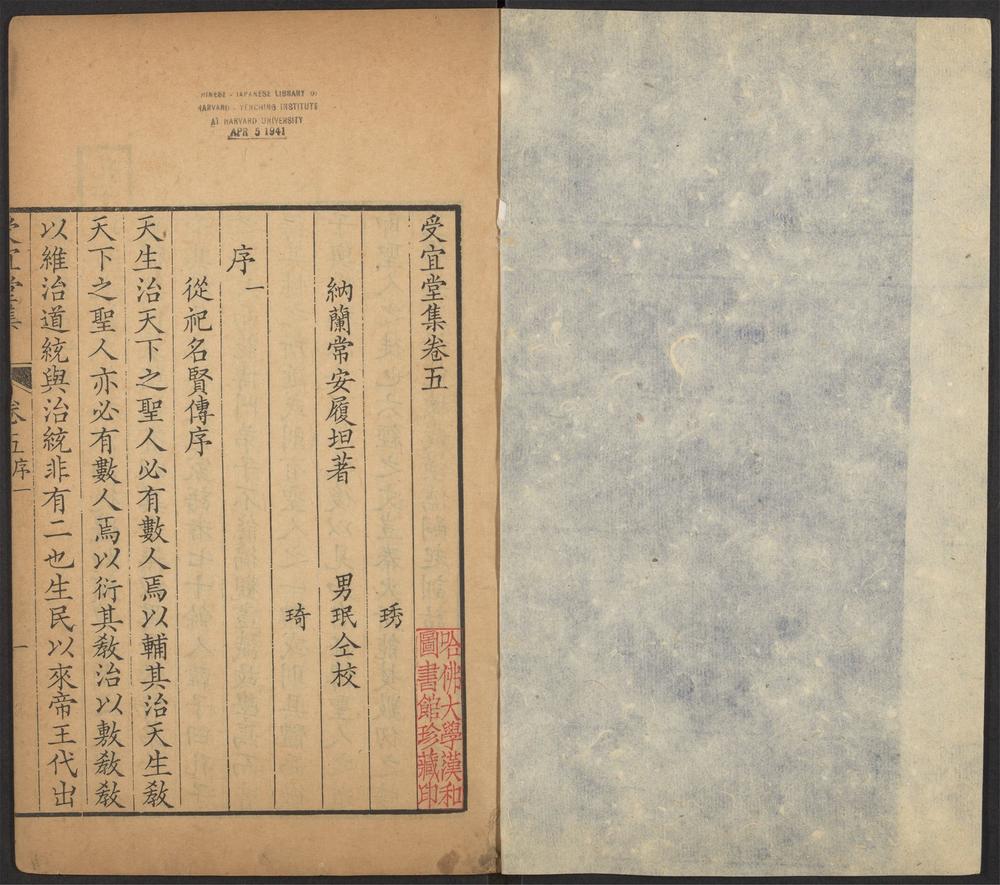 CHINESE - JAPANESE LIBRARY OF
HARVARD - YENCHING INSTITUTE
AT HARVARD UNIVERSITY
APR 5 1941
受宜堂集卷五
琇
納蘭常安履坦著 男珉仝校
琦
序一
從祀名賢傳序
天生治天下之聖人必有數人焉以輔其治天生敎
天下之聖人亦必有數人焉以衍其敎治以敷敎敎
以維治道統與治統非有二也生民以來帝王代出
受宜堂集 卷五序一 一
哈佛大學漢和
圖書館珍藏印